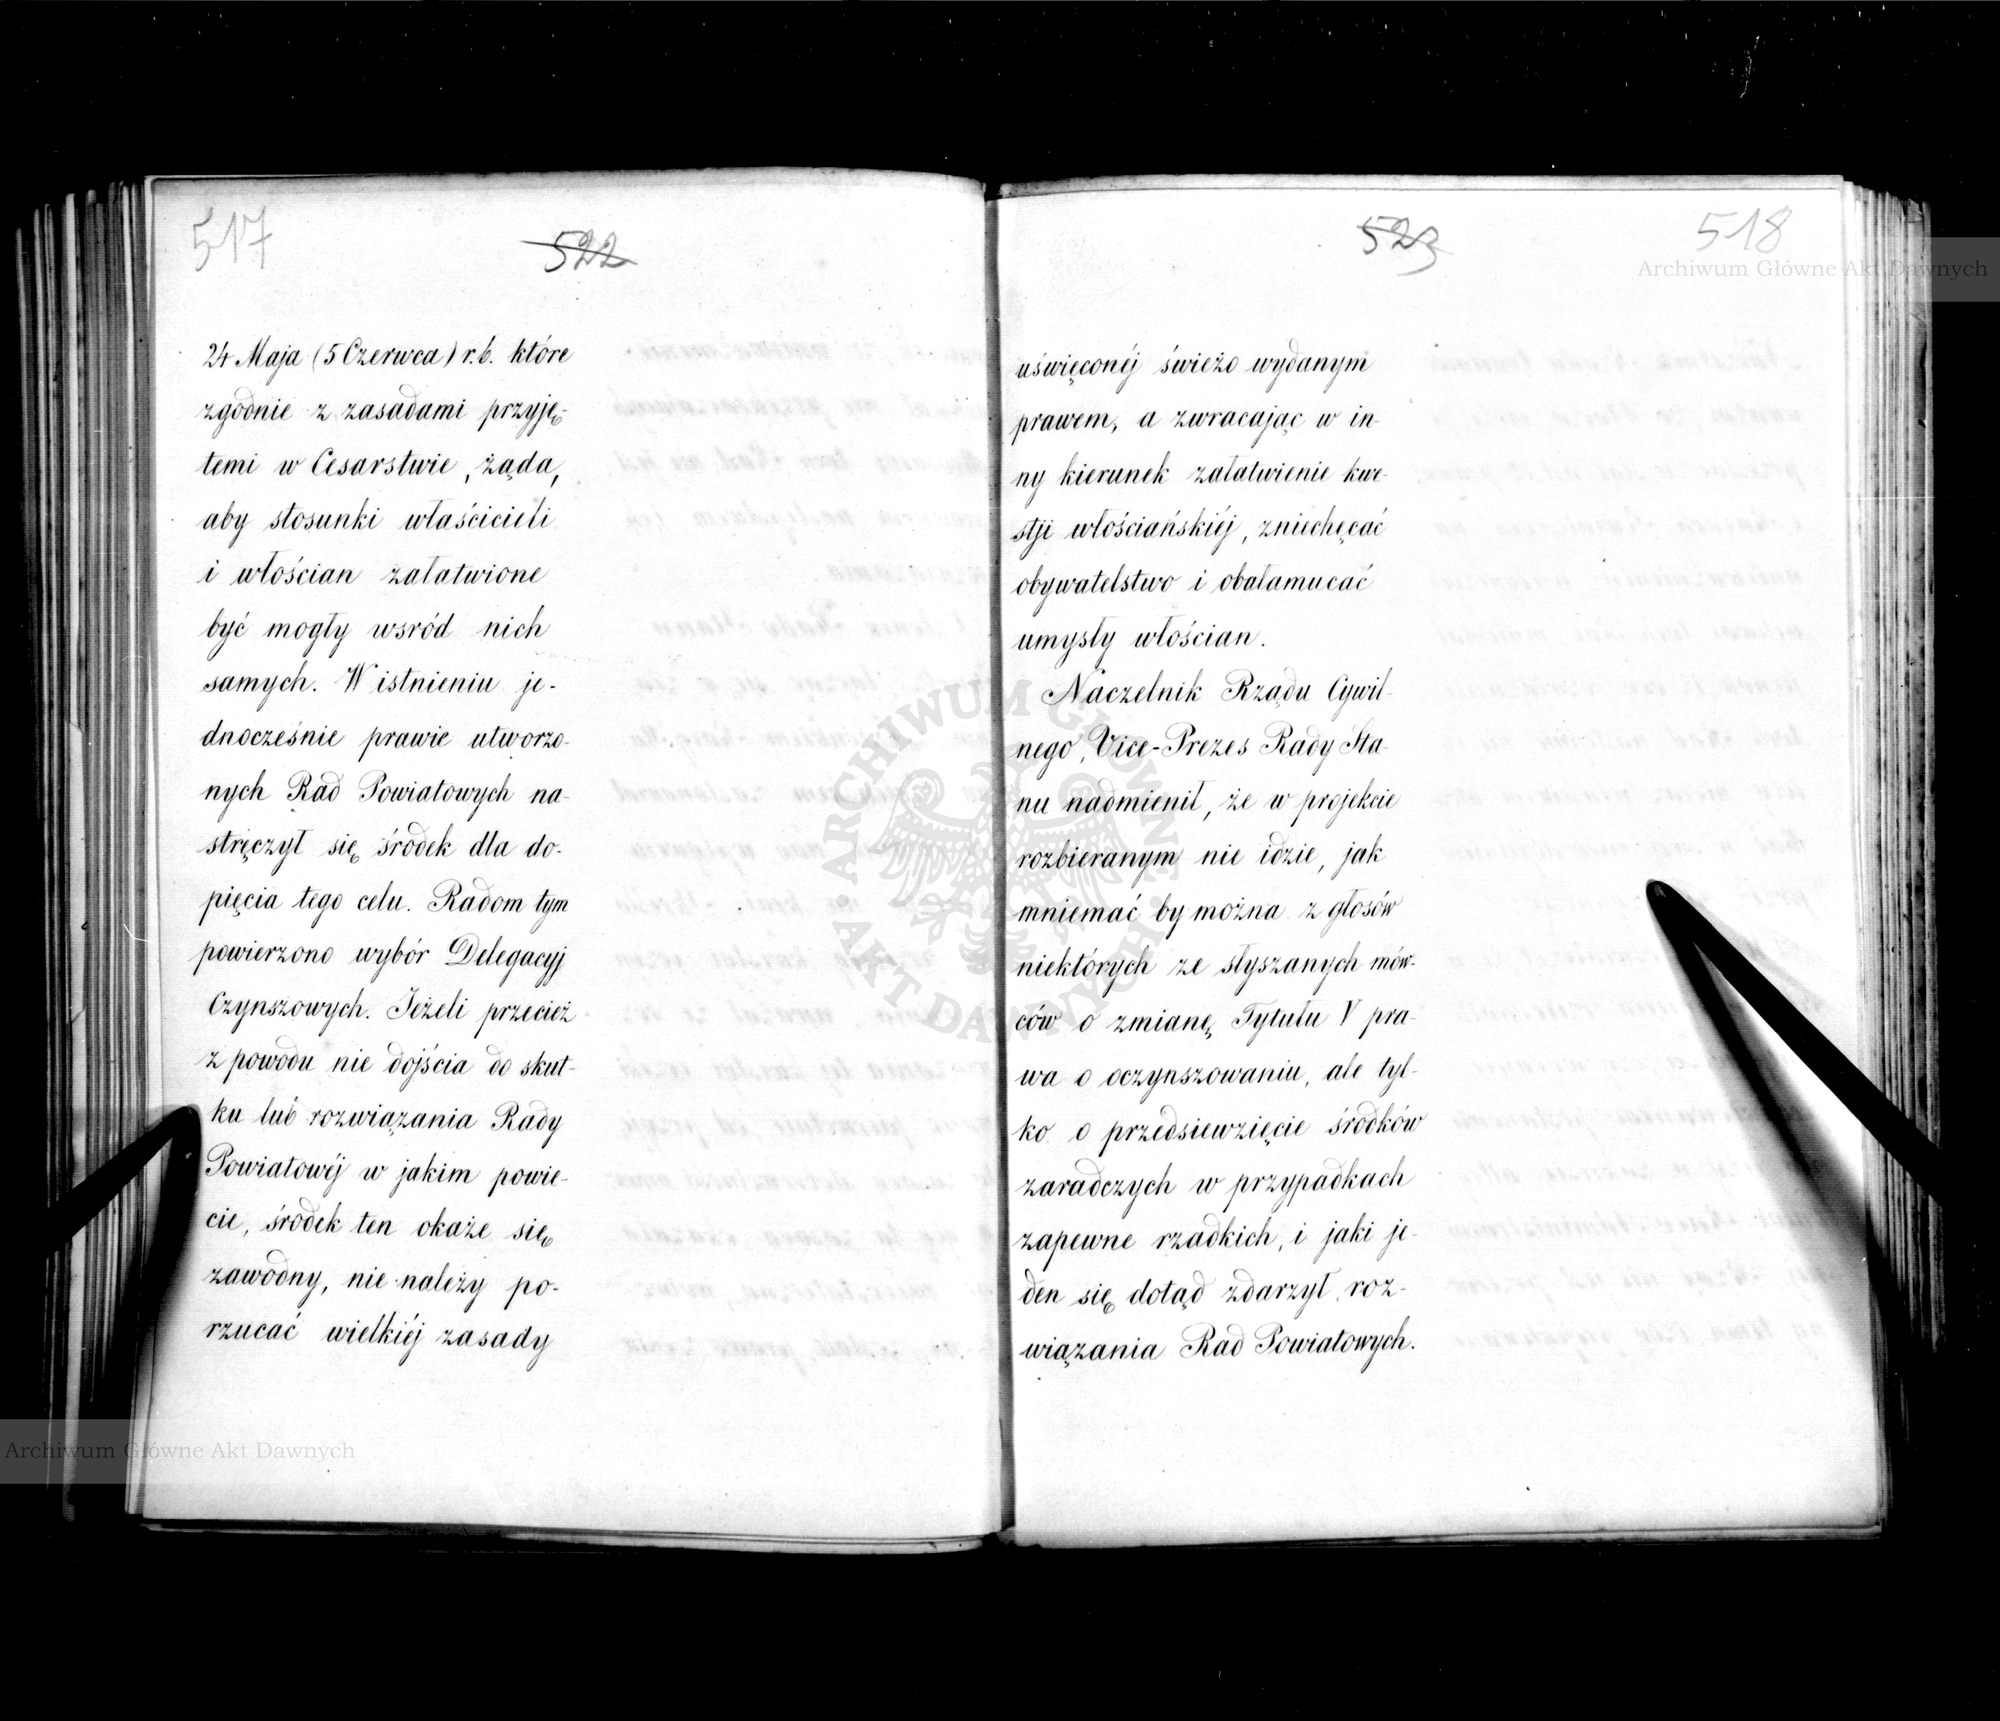 517
522
24 Maja (5 Czerwca) r.b. które
zgodnie z zasadami przyję-
temi w Cesarstwie, żąda,
aby stosunki właścicieli
i włościan załatwione
być mogły wsród nich
samych. W istnieniu je-
dnocześnie prawie utworzo-
nych Rad Powiatowych na-
stręczył się środek dla do-
pięcia tego celu. Radom tym
powierzono wybór Delegacyj
Czynszowych. Jeżeli przecież
z powodu nie dojścia do skut-
ku lub rozwiązania Rady
Powiatowéj w jakim powie-
cie, środek ten okaże się
zawodny, nie należy po-
rzucać wielkiéj zasady
523
518
uświęconéj świeżo wydanym
prawem, a zwracając w in-
ny kierunek załatwienie kwe-
stji włościańskiéj, zniechęcać
obywatelstwo i obałamucać
umysły włościan.
Naczelnik Rządu Cywil-
nego, Vice-Prezes Rady Sta-
nu nadmienił, że w projekcie
rozbieranym nie idzie, jak
mniemać by można z głosów
niektórych ze słyszanych mów-
ców o zmianę Tytułu V pra-
wa o oczynszowaniu, ale tyl-
ko o przedsiewzięcie środków
zaradczych w przypadkach
zapewne rzadkich, i jaki je-
den się dotąd zdarzył, roz-
wiązania Rad Powiatowych.
Archiwum Główne Akt Dawnych
Archiwum Główne Akt Dawnych
ARCHIWUM GŁÓWNE AKT DAWNYCH